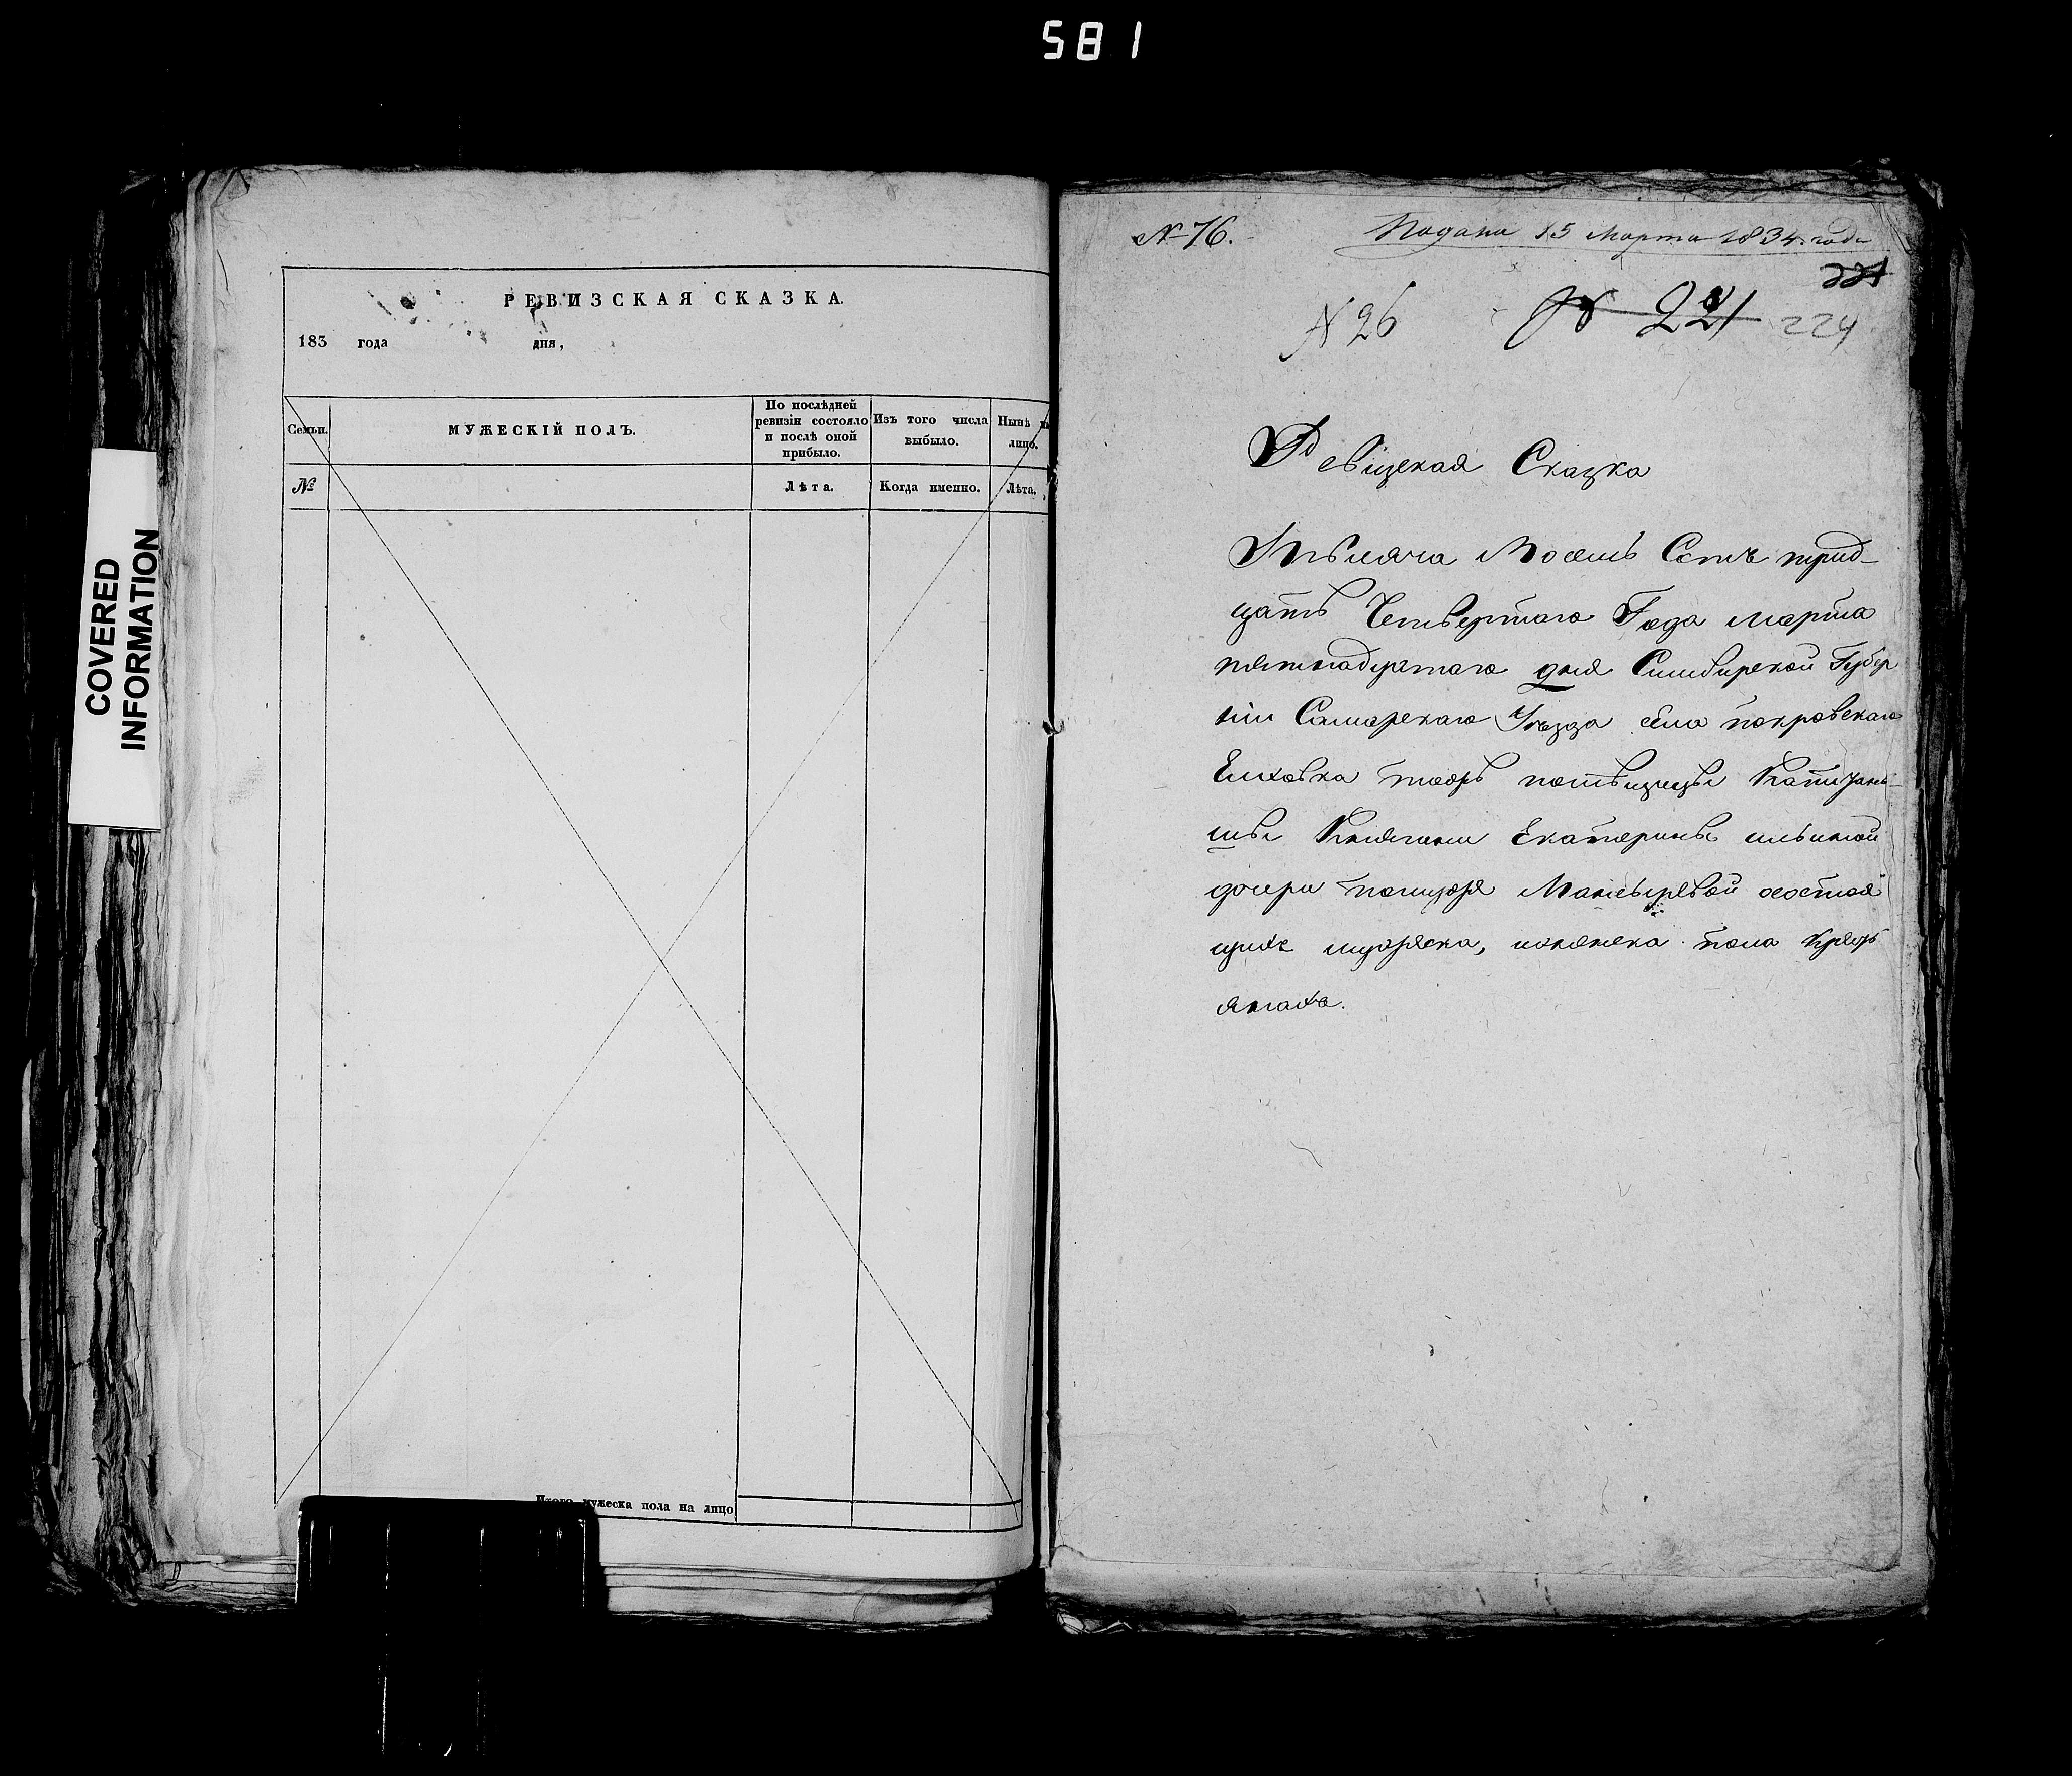 581
COVERED
INFORMATION
РЕВИЗСКАЯ СКАЗКА.
183 года дня,
Семьи.
МУЖЕСКІЙ ПОЛЪ.
По послѣдней
ревизіи состояло
и послѣ оной
прибыло.
Изъ того числа
выбыло.
Нынѣ на
лицо.
№
Лѣта.
Когда именно.
Лѣта.
Итого мужеска пола на лицо
№ 76.
Подана 15 Марта 1834 года
221
N 26
№ 221
224
Ревизская Сказка
Тысяча Восемь Сотъ трид-
цать Четвертаго Года марта
пятнадцатаго дня Симбирской Губер
ніи Самарскаго Уѣзда села покровскаго
Елховка тожъ
Княгини Екатерины ильиной
дочери Мансыревой состоя
щихъ мужеска, иженска пола крезь
янахъ.